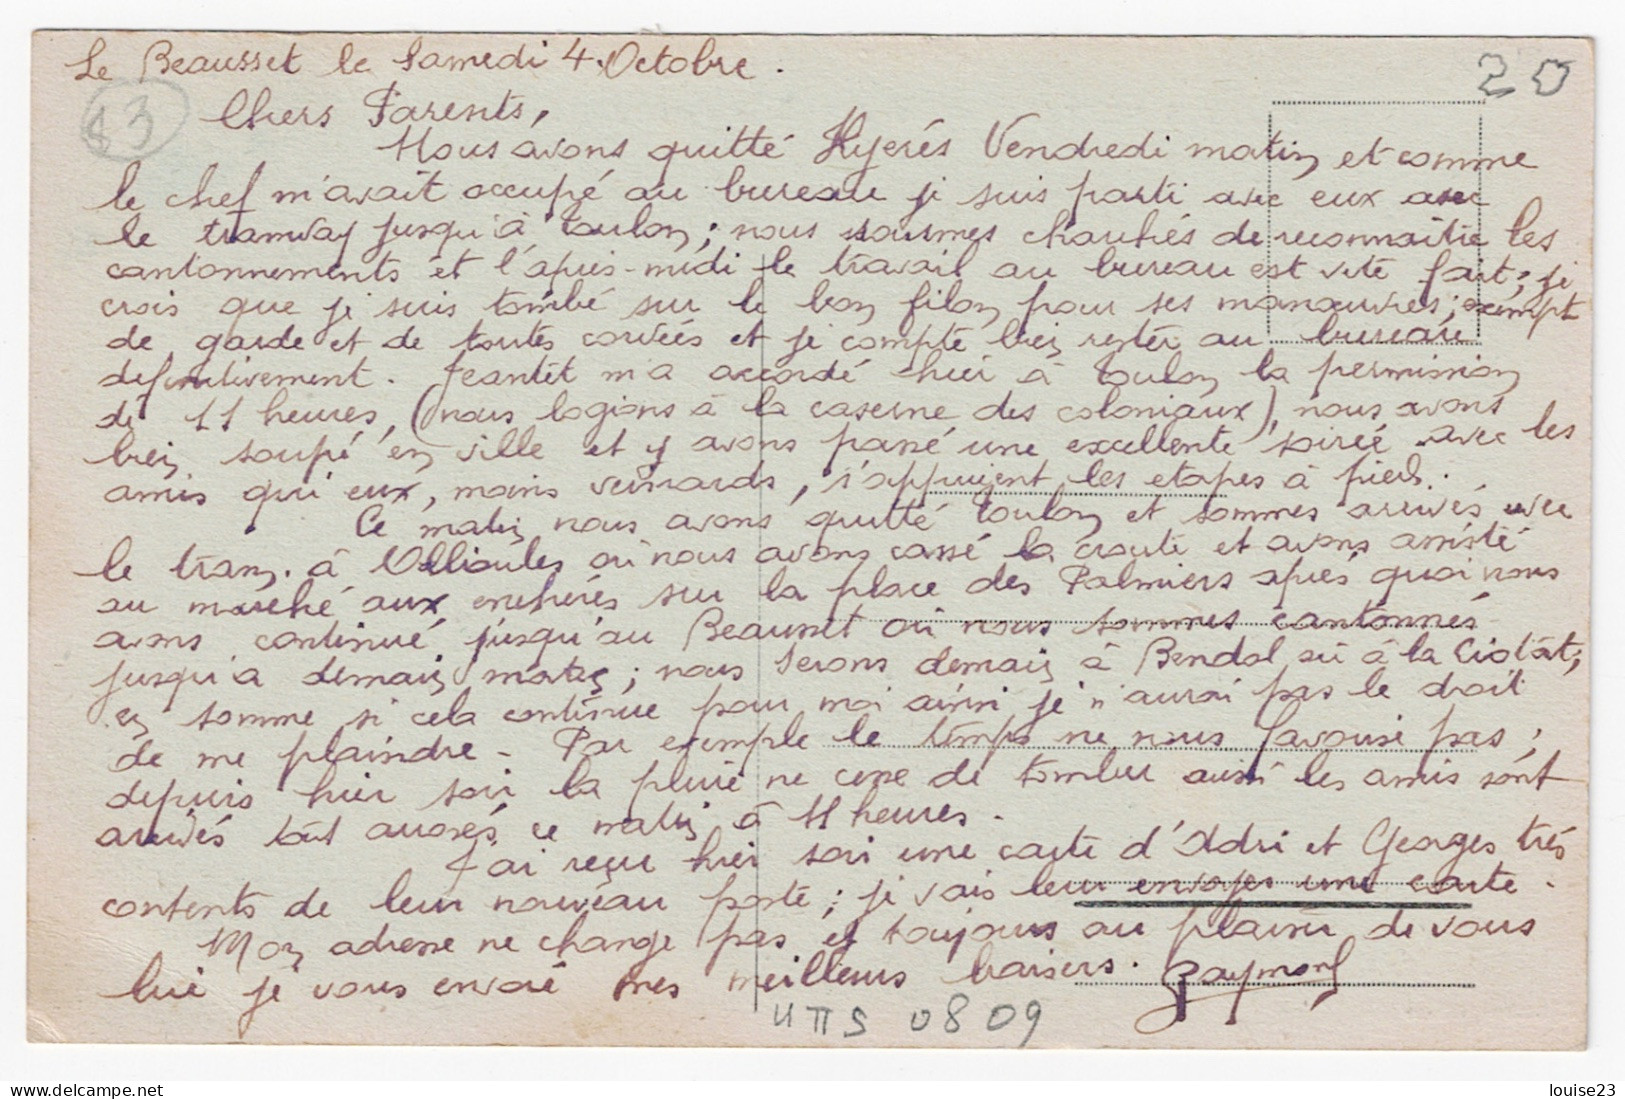 Le Beausset le Samedi 4 Octobre.
20
83
Chers Parents,
Nous avons quitté Hyerés Vendredi matin et comme
le chef m'avait occupé au bureau je suis parti avec eux avec
le tramway jusqu'à Toulon; nous sommes chargés de reconnaître les
cantonnements et l'après-midi le travail au bureau est vite fait; je
crois que je suis tombé sur le bon filon pour ses manœuvres; exempt
de garde et de toutes corvées et je compte bien rester au bureau
définitivement. Jeantet m'a accordé hier à Toulon la permission
de 11 heures, (nous logions à la caserne des coloniaux), nous avons
bien soupé en ville et y avons passé une excellente soirée avec les
amis qui eux, moins veinards, s'appuient les etapes à pied.
Ce matin nous avons quitté Toulon et sommes arrivés avec
le tram. à Ollioules où nous avons cassé la croute et avons assisté
au marché aux enchéres sur la place des Palmiers après quoi nous
avons continué jusqu'au Beausset où nous sommes cantonnés
jusqu'a demain matin; nous serons demain à Bandol ou à la Ciotat;
en somme si cela continue pour moi ainsi je n'aurai pas le droit
de me plaindre - Par exemple le temps ne nous favorise pas;
depuis hier soir la pluie ne cesse de tomber aussi les amis sont
arrivés tout arrosés ce matin à 11 heures.
J'ai reçu hier soir une carte d'Adri et Georges très
contents de leur nouveau poste; je vais leur envoyer une carte.
Mon adresse ne change pas et toujours au plaisir de vous
lire je vous envoie mes meilleurs baisers. Raymond
UTTS 08 09
louise23